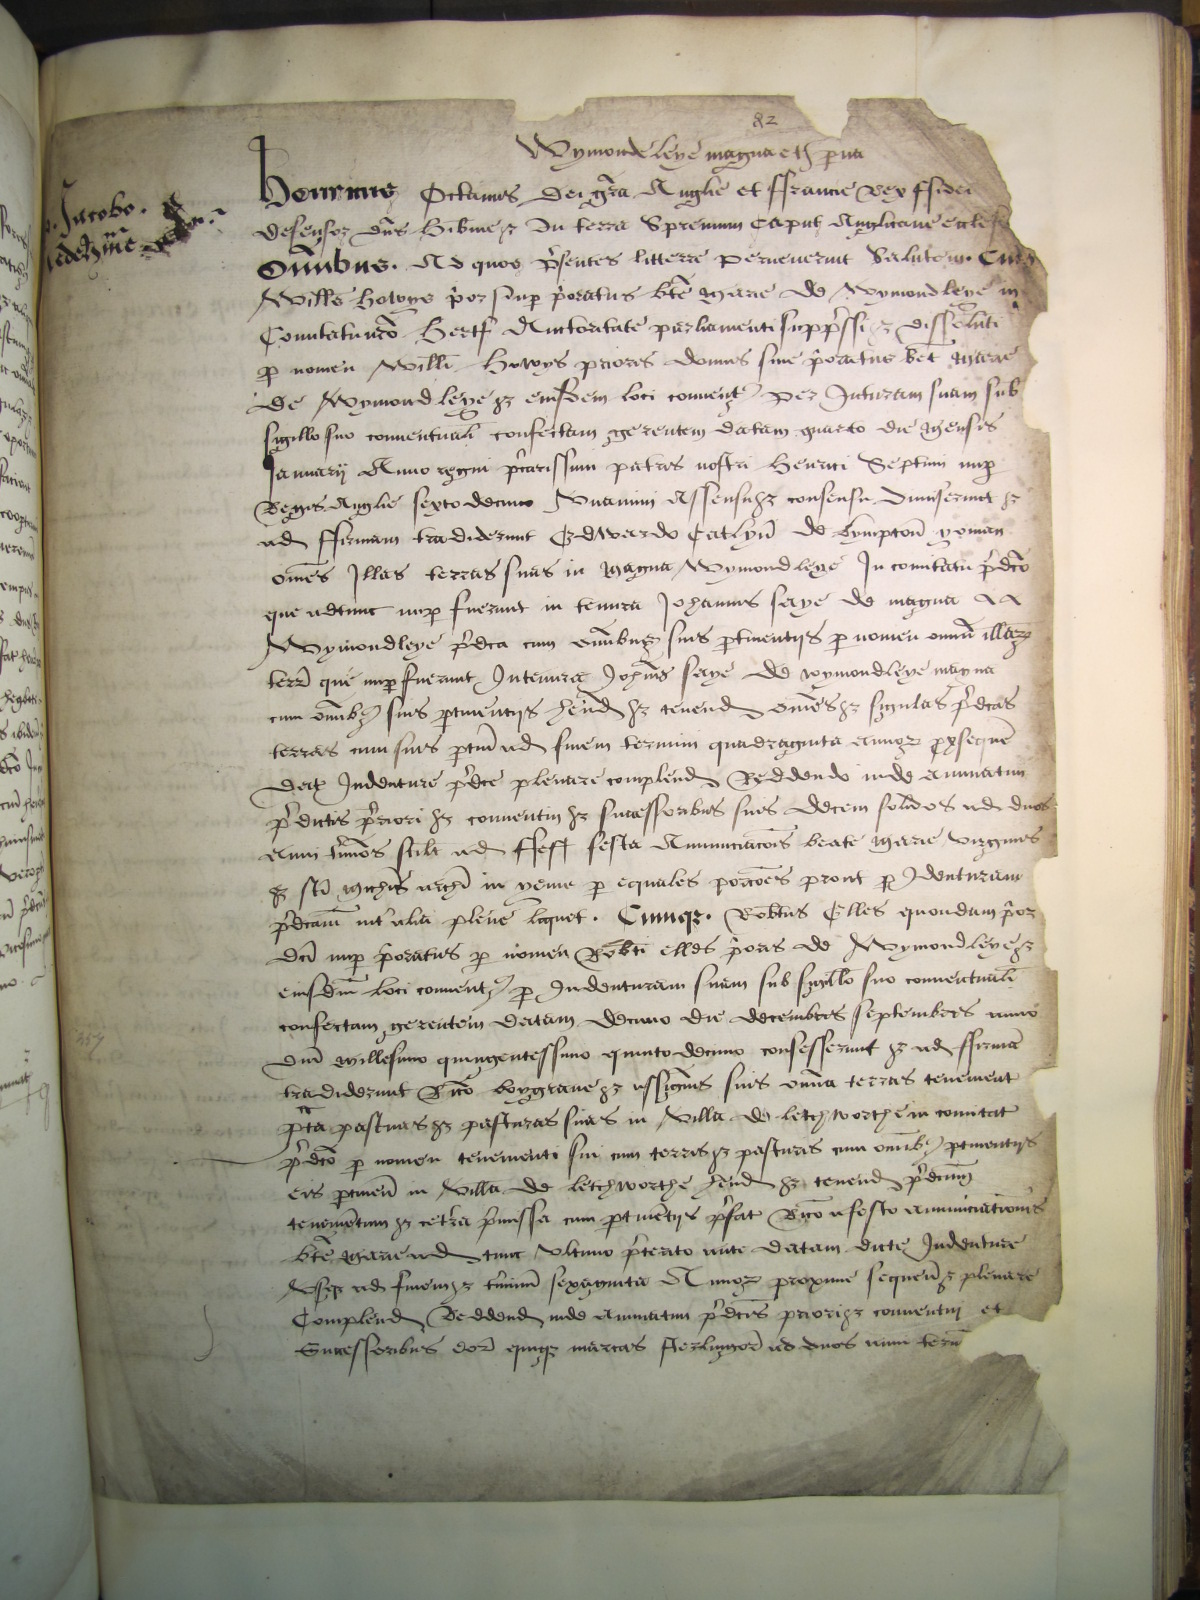 82
Wymondeleye magna et parua
Jacobo.
Henricus Octauus dei gra Anglie et ffrancie Rex ffidei
defensor dns hibnie & In terra Supremum Caput Anglicane eccles
Omnibus. Ad quos psentes littere peruenerint Salutem. Cum
Willms howys por siue poratus bte Marie de Wymondleye in
Comitatu nro Hertf Auctoritate parliamenti suppssi & dissoluti
p nomen Willi Howys prioris domus siue poratus bet Marie
de Wymondleye & eiusdem loci conuent per Inturam suam sub
sigillo suo conuentuali confectam gerentem datam quarto die Mensis
Januarij Anno regni pcarissimi patris nostri Henrici Septimi nup
Regis Anglie sexto decimo Vnanimi Assensu & consensu Dimiserunt &
ad ffirmam tradiderunt Edwardo Catlyn de Lympton yoman
omes Illas terras suas in Magna Wymondleye In comitatu pdco
que adtunc nup fuerunt in tenura Johannis Saye de magna
Wymondleye pdca cum omibus suis ptinentijs p nomen omnu illar
terr que nup fuerunt In tenura Johnis Saye de wymondleye magna
cum omib suis ptinentijs hend & tenend omes & singulas pdcas
terras cum suis ptin ad finem termini quadraginta annor px sequen
dat Indenture pdce plenarie complend Reddendo inde annuatim
pdictis priori & conuentui & successoribus suis decem solidos ad duos
anni tmos scilt ad ffest festa Annunciacois beate Marie virginis
& sci Michis archi in yeme p equales porcoes prout p Indenturam
pdcam int alia plene liquet. Cumqz. Robtus Elles quondam por
dci nup poratus p nomen Robti elles poris de Wymondleye &
eiusdm loci conuent p Indenturam suam sub sigillo suo conuentuali
confectam gerentem datam decimo die decembris septembris anno
dni millesimo quingentessimo quinto decimo consesserunt & ad ffirma
tradiderunt Rico boygraue & assignis suis omia terras tenement
pta pastuas & pasturas suas in Villa de letchworthe in comitat
pdco p nomen tenementi sui cum terris & pasturis cum omib ptinentijs
eis ptinen in Villa de letchworthe hend & tenend pdcum
tenementum & cetera pmissa cum ptinentijs pfat Rico a festo annunciationis
bte Marie ad tunc Vltimo pterito ante datam dicte Indenture
Vsqz ad finem & tminu sexaginta Annor proxime sequen & plenarie
Complend Reddend inde annuatim pdcis priori & conuentui et
Successoribus eor quinqz marcas sterlingor ad duos anni term